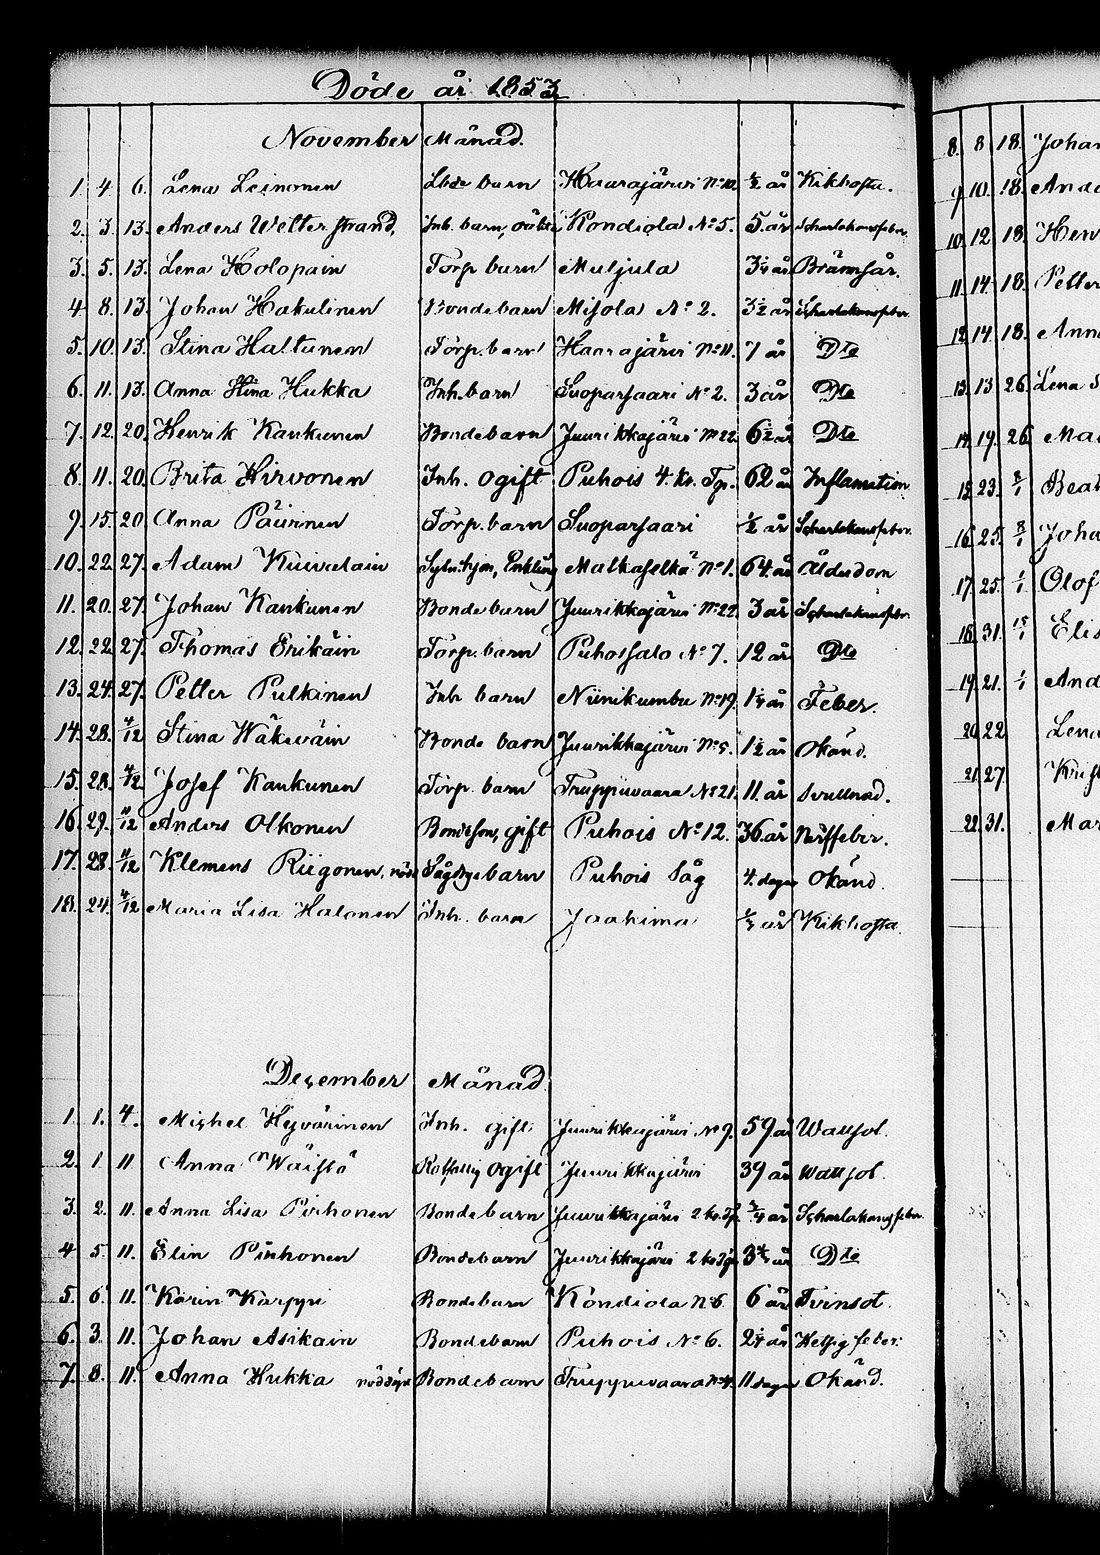 Döde år 1853
November Månad.
1. 4. 6. Lena Leinonen Lösde barn Haarajärvi No 10. ½ år Kikhosta.
2. 3. 13. Anders Wetterstrand, Inh. barn, Kondiola No 5. 5 år Scharlakansfeber.
3. 5. 13. Lena Holopain Torp barn Muljula 3¼ år Brännsår.
4 8. 13. Johan Hakulinen Bondebarn Misola No 2. 3½ år Scharlakansfeber.
5. 10. 13. Stina Haltunen Torp. barn Haarajärvi No 11. 7 år Dto
6. 11. 13. Anna Stina Hukka Inh. barn Suoparsaari No 2. 3 år Dto
7. 12. 20. Henrik Kankunen Bondebarn Juurikkajärvi No 22. 6½ år Dto
8. 11. 20. Brita Hirvonen Inh. ogift Puhois 4. kr. Tp. 62 år Inflamation
9. 15. 20. Anna Päivinen Torp. barn Suoparsaari ½ år Scharlakansfeber.
10. 22. 27. Adam Kuivalain Enkling Matkaselkä No 1. 64 år Ålderdom
11. 20. 27. Johan Kankunen Bonde barn Juurikkajärvi No 22. 3 år Scharlakansfeber
12. 22. 27. Thomas Erikäin Torp. barn Puhossalo No 7. 12 år Dto
13. 24. 27. Petter Pulkinen Inh barn Niinikumbu No 19. 1¼ år Feber.
14. 28. 4/12 Stina Wäkeväin Bonde barn Juurikkajärvi No 5. 1½ år Okänd.
15. 28. 4/12 Josef Kankunen Torp. barn Truppuvaara No 21. 11 år Svullnad.
16. 29. 11/12 Anders Olkonen Bondeson, gift Puhois No 12. 36 år Nerffeber.
17. 28. 11/12 Klemens Riigonen, barn Puhois Såg 4. dagar Okänd.
18. 24. 4/12 Maria Lisa Halonen Inh. barn Jaahima år Kikhosta.
December Månad
1. 1. 4. Michel Hyvärinen Inh. gift Juurikkajärvi No 9. 59 år Wattsot.
2. 1. 11 Anna Wäistö Rotfattig ogift Juurikkajärvi 39 år Wattsot.
3. 2. 11. Anna Lisa Pirhonen Bonde barn Juurikkajärvi 2 kr. Tp. ¾ år Scharlakansfeber.
4 5. 11. Elin Pirhonen Bondebarn Juurikkajärvi 2 kr Tp. år Dto
5. 6. 11. Karin Karppi Bondebarn Kondiola No 6. 6 år Tvinsot.
6. 3. 11. Johan Asikain Bondebarn Puhois No 6. 2¼ år Hetsig feber.
7. 8. 11. Anna Hukka nöddöpt Bondebarn Truppuvaara No 4. 11 dagar Okänd.
8. 8 18. Johan
9. 10. 18. Ande
10. 12 18. Hen
11. 14 18. Petter
12. 14 18. Anna
13. 13 26. Lena
14. 19. 26. Mar
15. 23. 8/1 Beat
16. 25. 8/1 Joha
17. 25. 1/1 Olof
18. 31. 15/1 Elis
19. 21. 1/1 And
20. 22 Lena
21. 27 Krist
22. 31. Mar